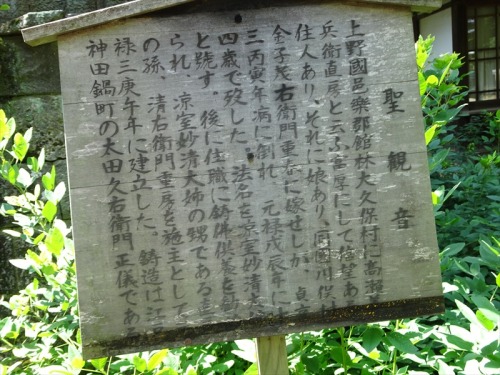 聖観音
上野國邑樂郡館林大久保村に高瀬
兵衛直房と云ふ重厚にして徳望ある
住人あり、それに娘あり、同國川俣
金子茂右衛門重恭に嫁せしが、貞享
三丙寅年病に倒れ、元禄戊辰年に
四歳で歿した。法名を凉室妙清大
と號す。後に住職に鋳佛供養を
られ、凉室妙清大姉の甥である
の孫、清右衛門重房を施主として
禄三庚午年に建立した。鋳造は江
神田鍋町の太田久右衛門正儀である